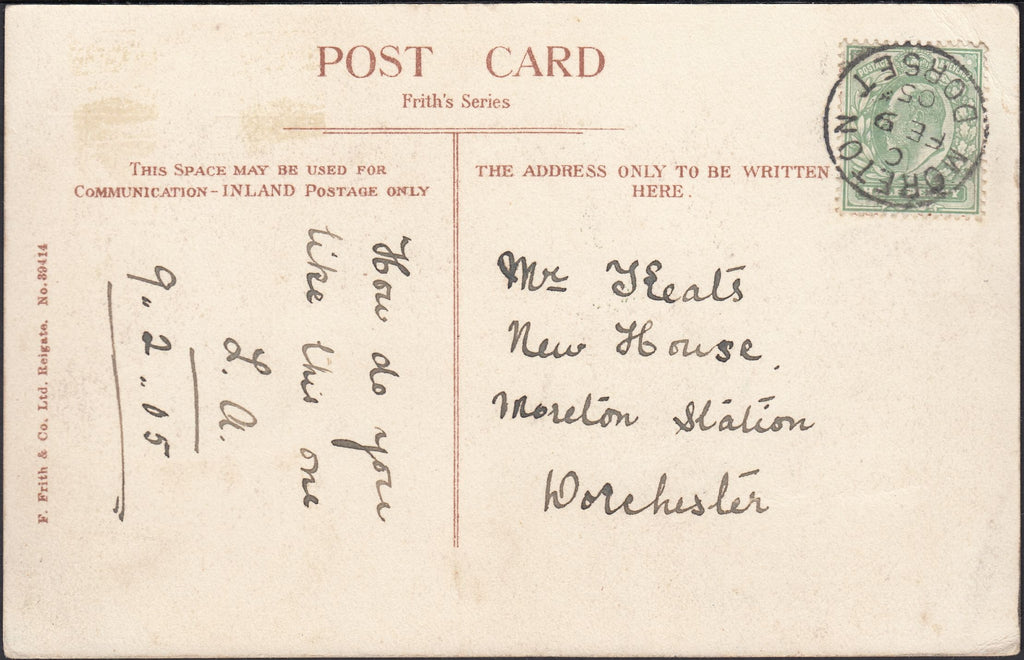 POST CARD
Frith's Series
THIS SPACE MAY BE USED FOR
COMMUNICATION-INLAND POSTAGE ONLY
THE ADDRESS ONLY TO BE WRITTEN
HERE.
MORETON
C
FE 9
05
DORSET
How do you
like this one
L. A.
9.. 2.. 05
Mr Keats
New House
Moreton Station
Dorchester
F. Frith & Co. Ltd. Reigate. No. 39414